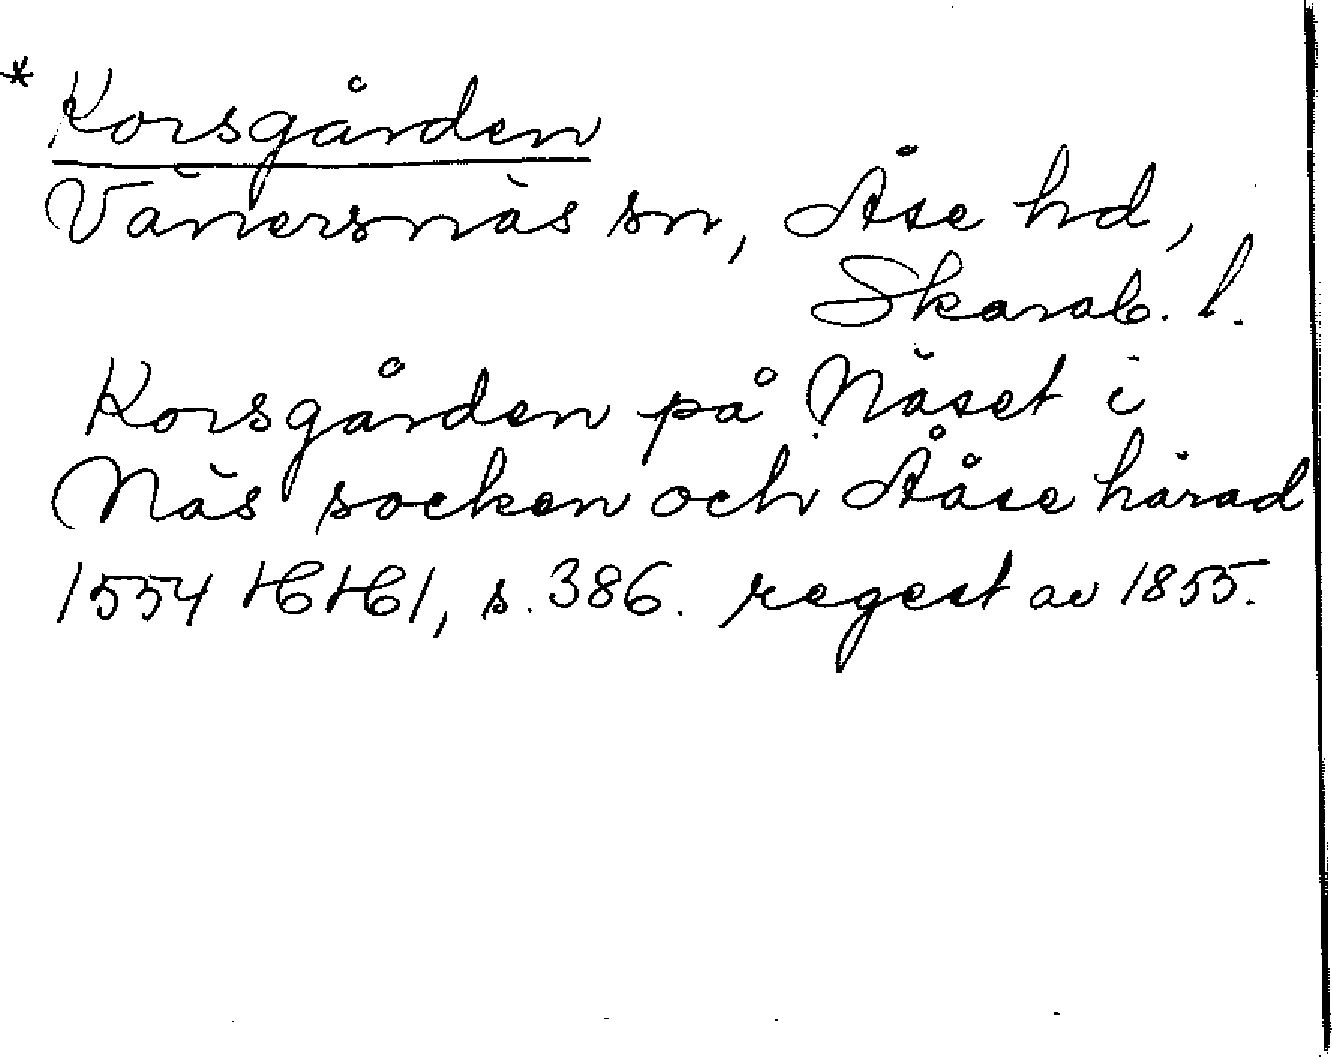 * Korsgården
Vänersnäs sn, Åse hd,
Skarab. l.
Korsgården på Näset i
Näs socken och Ååse härad
1554 HH1, s. 386. regest av 1855.